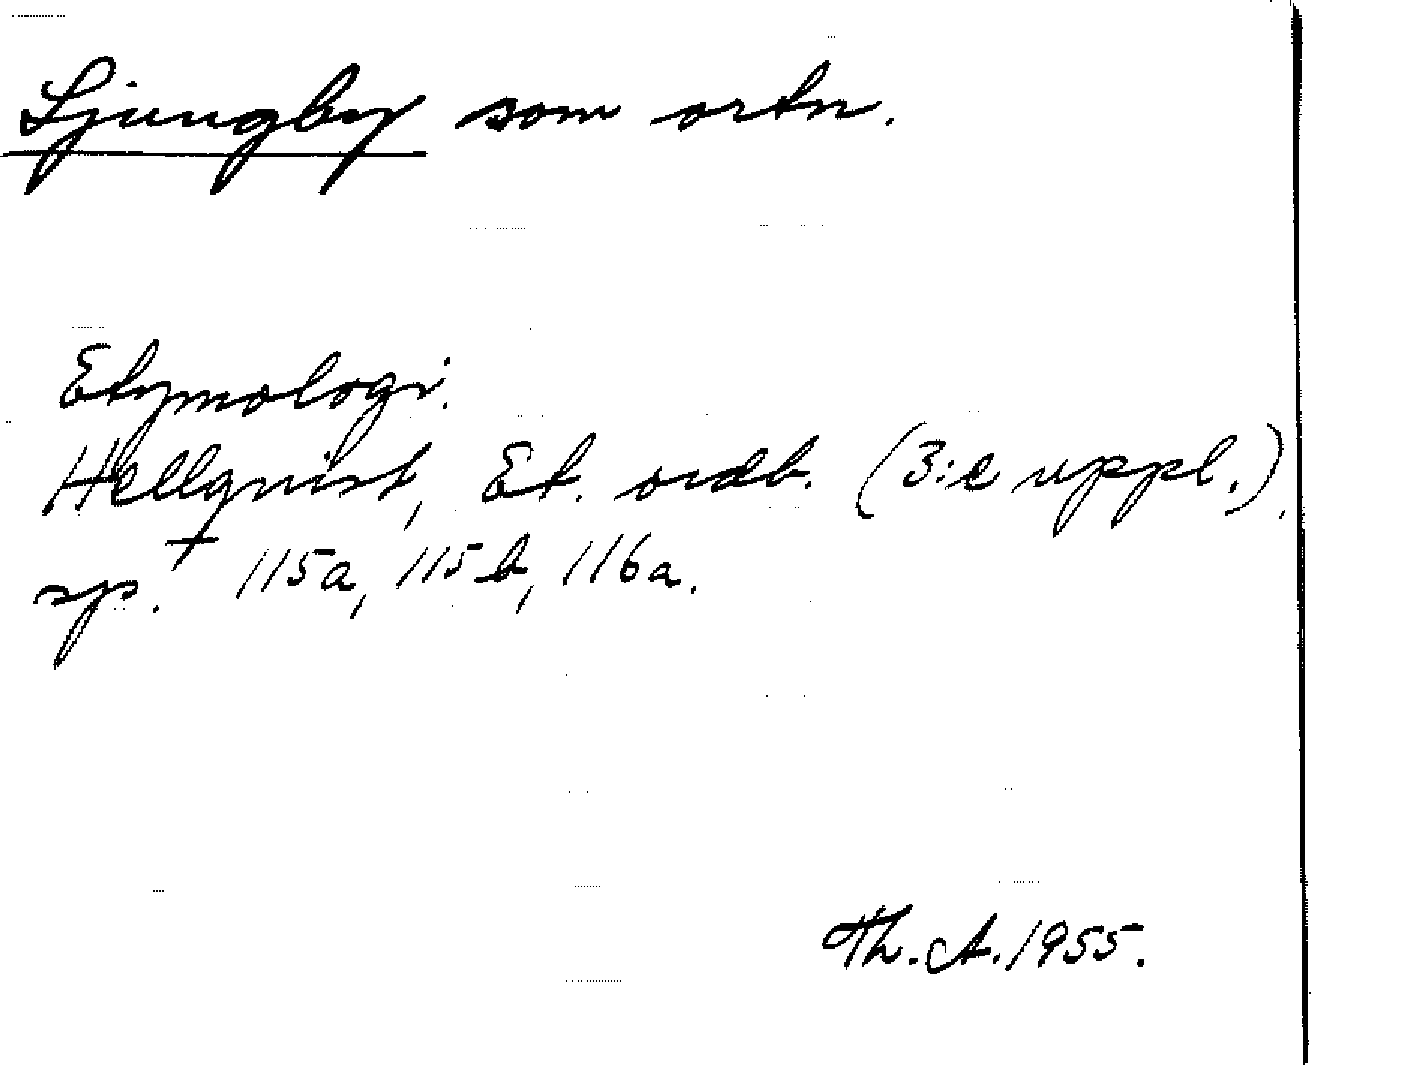 Ljungby som ortn.
Etymologi.
Hellqvist, Et. ordb. (3:e uppl.),
sp. 115a, 115b, 116a.
Th. A. 1955.